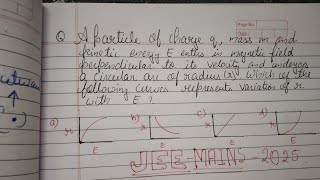 Page No.
Date
Q A particle of charge q, mass m and
kinetic energy E enters in magnetic field
perpendicular to its velocity and undergoes
a circular arc of radius (r). Which of the
following curves represents variation of r
with E ?
a) r E b) r E c) r E d) r E
JEE-MAINS-2025